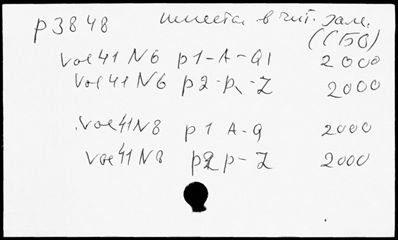 p3848 имеется в чит. зале.
(СБО)
Vol 41 N6 p1-A-Q1 2000
Vol 41 N6 p2-p-Z 2000
Vol 41 N8 p1 A-Q 2000
Vol 41 N8 p2 p-Z 2000